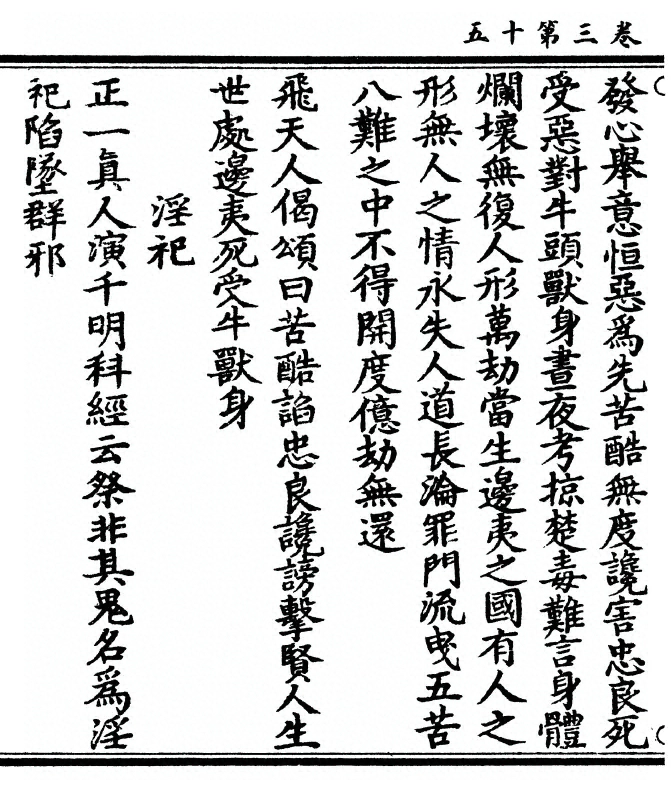 卷三第十五
發心舉意恒惡爲先苦酷無度讒害忠良死
受惡對牛頭獸身晝夜考掠楚毒難言身體
爛壞無復人形萬劫當生邊夷之國有人之
形無人之情永失人道長淪罪門流曵五苦
八難之中不得開度億劫無還
飛天人偈頌曰苦酷諂忠良讒謗擊賢人生
世處邊夷死受牛獸身
淫祀
正一眞人演千明科經云祭非其鬼名爲淫
祀陷墜群邪